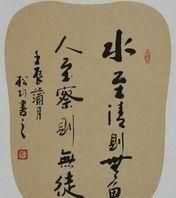 水至清則無魚
人至察則無徒
壬辰蒲月
書之